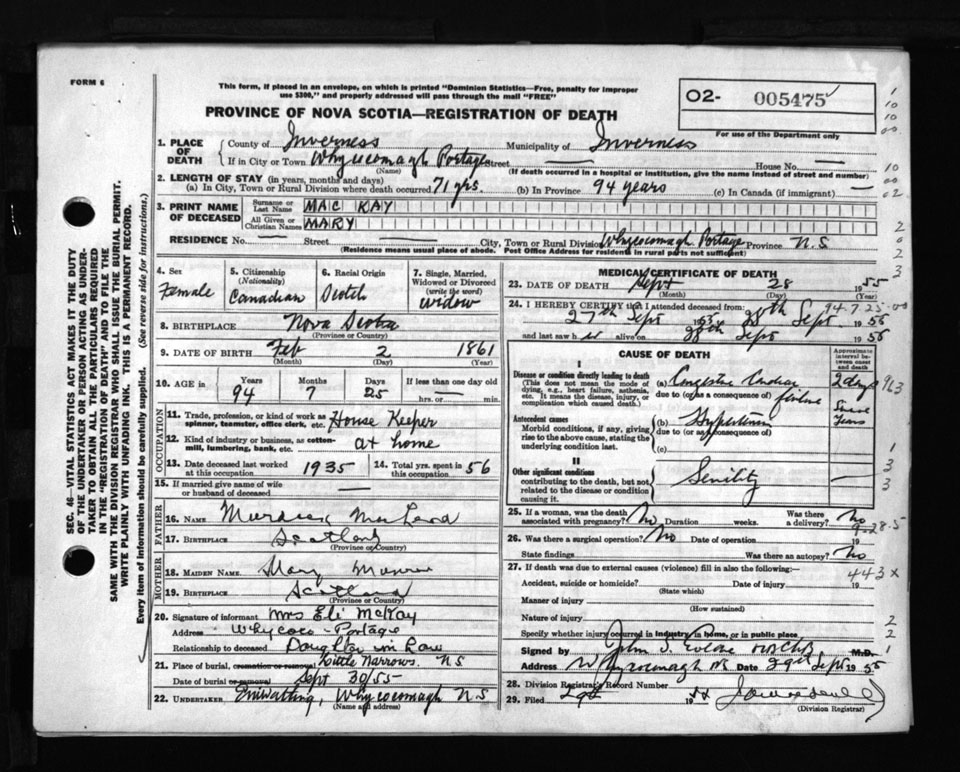 FORM 6
This form, if placed in an envelope, on which is printed "Dominion Statistics—Free, penalty for improper
use $300," and properly addressed will pass through the mail "FREE"
PROVINCE OF NOVA SCOTIA—REGISTRATION OF DEATH
02- 005475
For use of the Department only
SEC. 46—VITAL STATISTICS ACT MAKES IT THE DUTY
OF THE UNDERTAKER OR PERSON ACTING AS UNDER-
TAKER TO OBTAIN ALL THE PARTICULARS REQUIRED
IN THE "REGISTRATION OF DEATH" AND TO FILE THE
SAME WITH THE DIVISION REGISTRAR WHO SHALL ISSUE THE BURIAL PERMIT.
WRITE PLAINLY WITH UNFADING INK. THIS IS A PERMANENT RECORD.
Every item of information should be carefully supplied. (See reverse side for instructions.)
1. PLACE OF DEATH County of Inverness Municipality of Inverness
If in City or Town Whycocomagh Portage Street — House No. —
(Name) (If death occurred in a hospital or institution, give the name instead of street and number)
2. LENGTH OF STAY (in years, months and days)
(a) In City, Town or Rural Division where death occurred 71 yrs. (b) In Province 94 years (c) In Canada (if immigrant) —
3. PRINT NAME OF DECEASED Surname or Last Name MAC KAY
All Given or Christian Names MARY
RESIDENCE No. — Street — City, Town or Rural Division Whycocomagh Portage Province N.S
(Residence means usual place of abode. Post Office Address for residents in rural parts not sufficient)
4. Sex Female
5. Citizenship (Nationality) Canadian
6. Racial Origin Scotch
7. Single, Married, Widowed or Divorced (write the word) Widow
8. BIRTHPLACE Nova Scotia
(Province or Country)
9. DATE OF BIRTH Feb 2 1861
(Month) (Day) (Year)
10. AGE in Years 94 Months 7 Days 25 If less than one day old
hrs. or — min.
OCCUPATION
11. Trade, profession, or kind of work as spinner, teamster, office clerk, etc. House Keeper
12. Kind of industry or business, as cotton-mill, lumbering, bank, etc. at home
13. Date deceased last worked at this occupation 1935 14. Total yrs. spent in this occupation 56
15. If married give name of wife or husband of deceased —
FATHER
16. NAME Murdock
17. BIRTHPLACE Scotland
(Province or Country)
MOTHER
18. MAIDEN NAME Mary Munro
19. BIRTHPLACE Scotland
(Province or Country)
20. Signature of informant Mrs Eli McKay
Address Whycoco - Portage
Relationship to deceased Daughter in Law
21. Place of burial, cremation or removal Little Narrows. N S
Date of burial or removal Sept 30/55
22. UNDERTAKER Whycocomagh N S
(Name and address)
MEDICAL CERTIFICATE OF DEATH
23. DATE OF DEATH Sept 28 1955
(Month) (Day) (Year)
94-7-25-00
24. I HEREBY CERTIFY that I attended deceased from:
27th Sept 1955 to 28th Sept 1955
and last saw h alive on 28th Sept 1955
CAUSE OF DEATH
Approximate interval between onset and death
I
Disease or condition directly leading to death
(This does not mean the mode of dying, e.g., heart failure, asthenia, etc. It means the disease, injury, or complication which caused death.)
(a) Congestive Cardiac failure 2 days
due to (or as a consequence of)
Antecedent causes
Morbid conditions, if any, giving rise to the above cause, stating the underlying condition last.
(b) Hypertension years
due to (or as consequence of)
(c) —
II
Other significant conditions
contributing to the death, but not related to the disease or condition causing it.
Senility —
25. If a woman, was the death associated with pregnancy? No Duration weeks. Was there a delivery? No
9-28-5
26. Was there a surgical operation? No 19
State findings Was there an autopsy? No
27. If death was due to external causes (violence) fill in also the following:—
443 x
Accident, suicide or homicide? Date of injury 19
(State which)
Manner of injury
(How sustained)
Nature of injury
Specify whether injury occurred in industry, in home, or in public place.
Signed by John S. M.D.
Address Whycocomagh NS Date 29th Sept 1955
28. Division Registrar's Record Number
29. Filed 19
(Division Registrar)